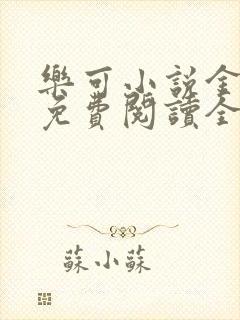 樂可小説全
免費閱讀全
蘇小蘇